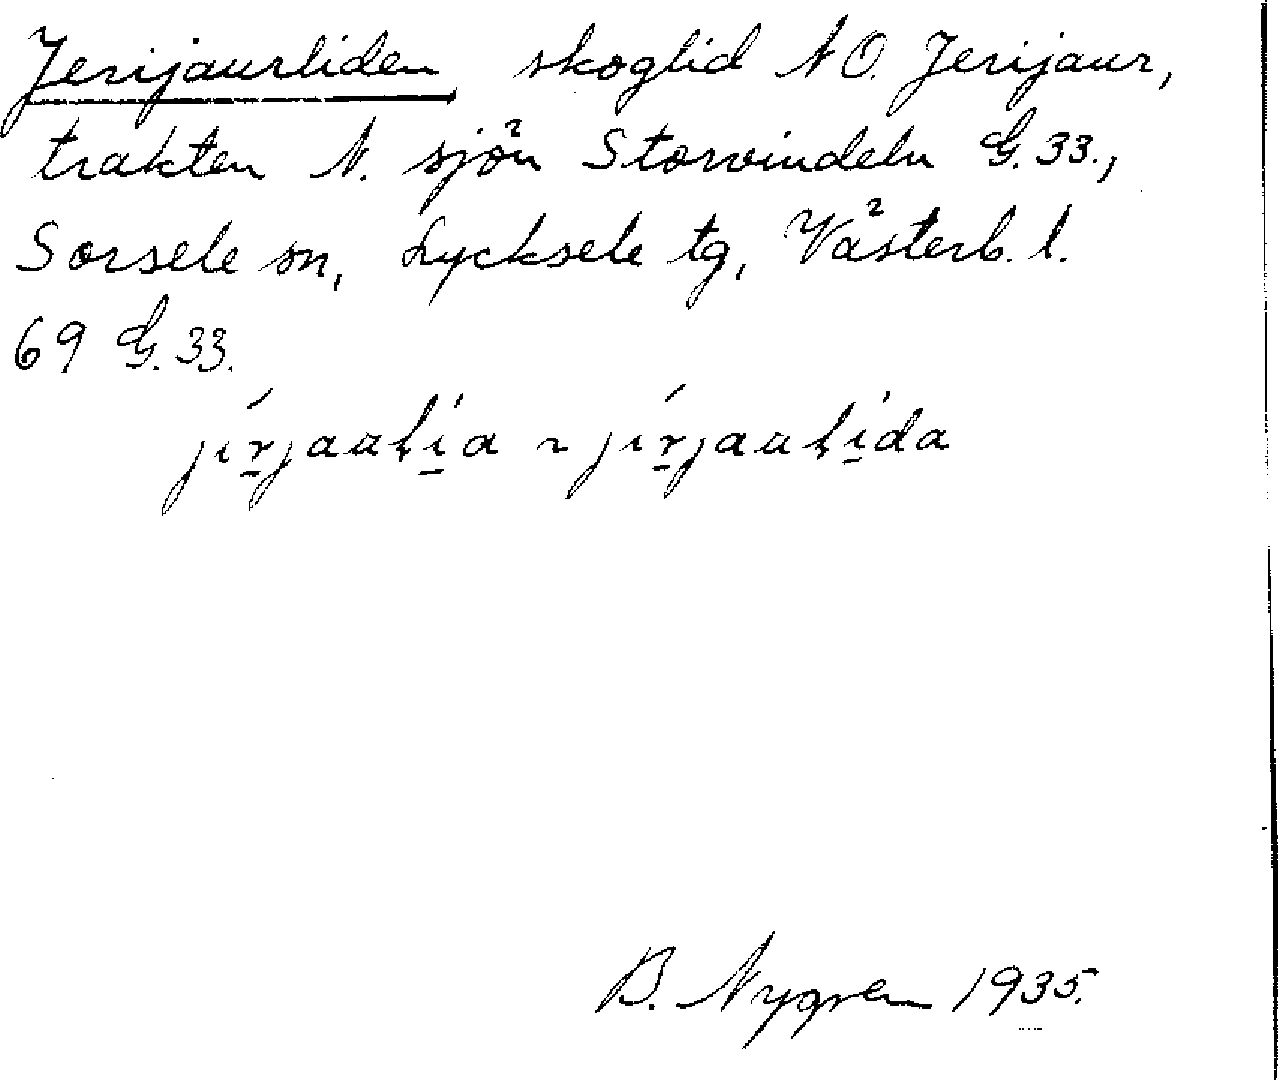 Jerijaurliden skoglid NO. Jerijaur,
trakten N. sjön Storvindeln G. 33.,
Sorsele sn, Lycksele tg, Västerb. l.
69 G. 33.
jırjaulia ~ jırjaulida
B. Nygren 1935.